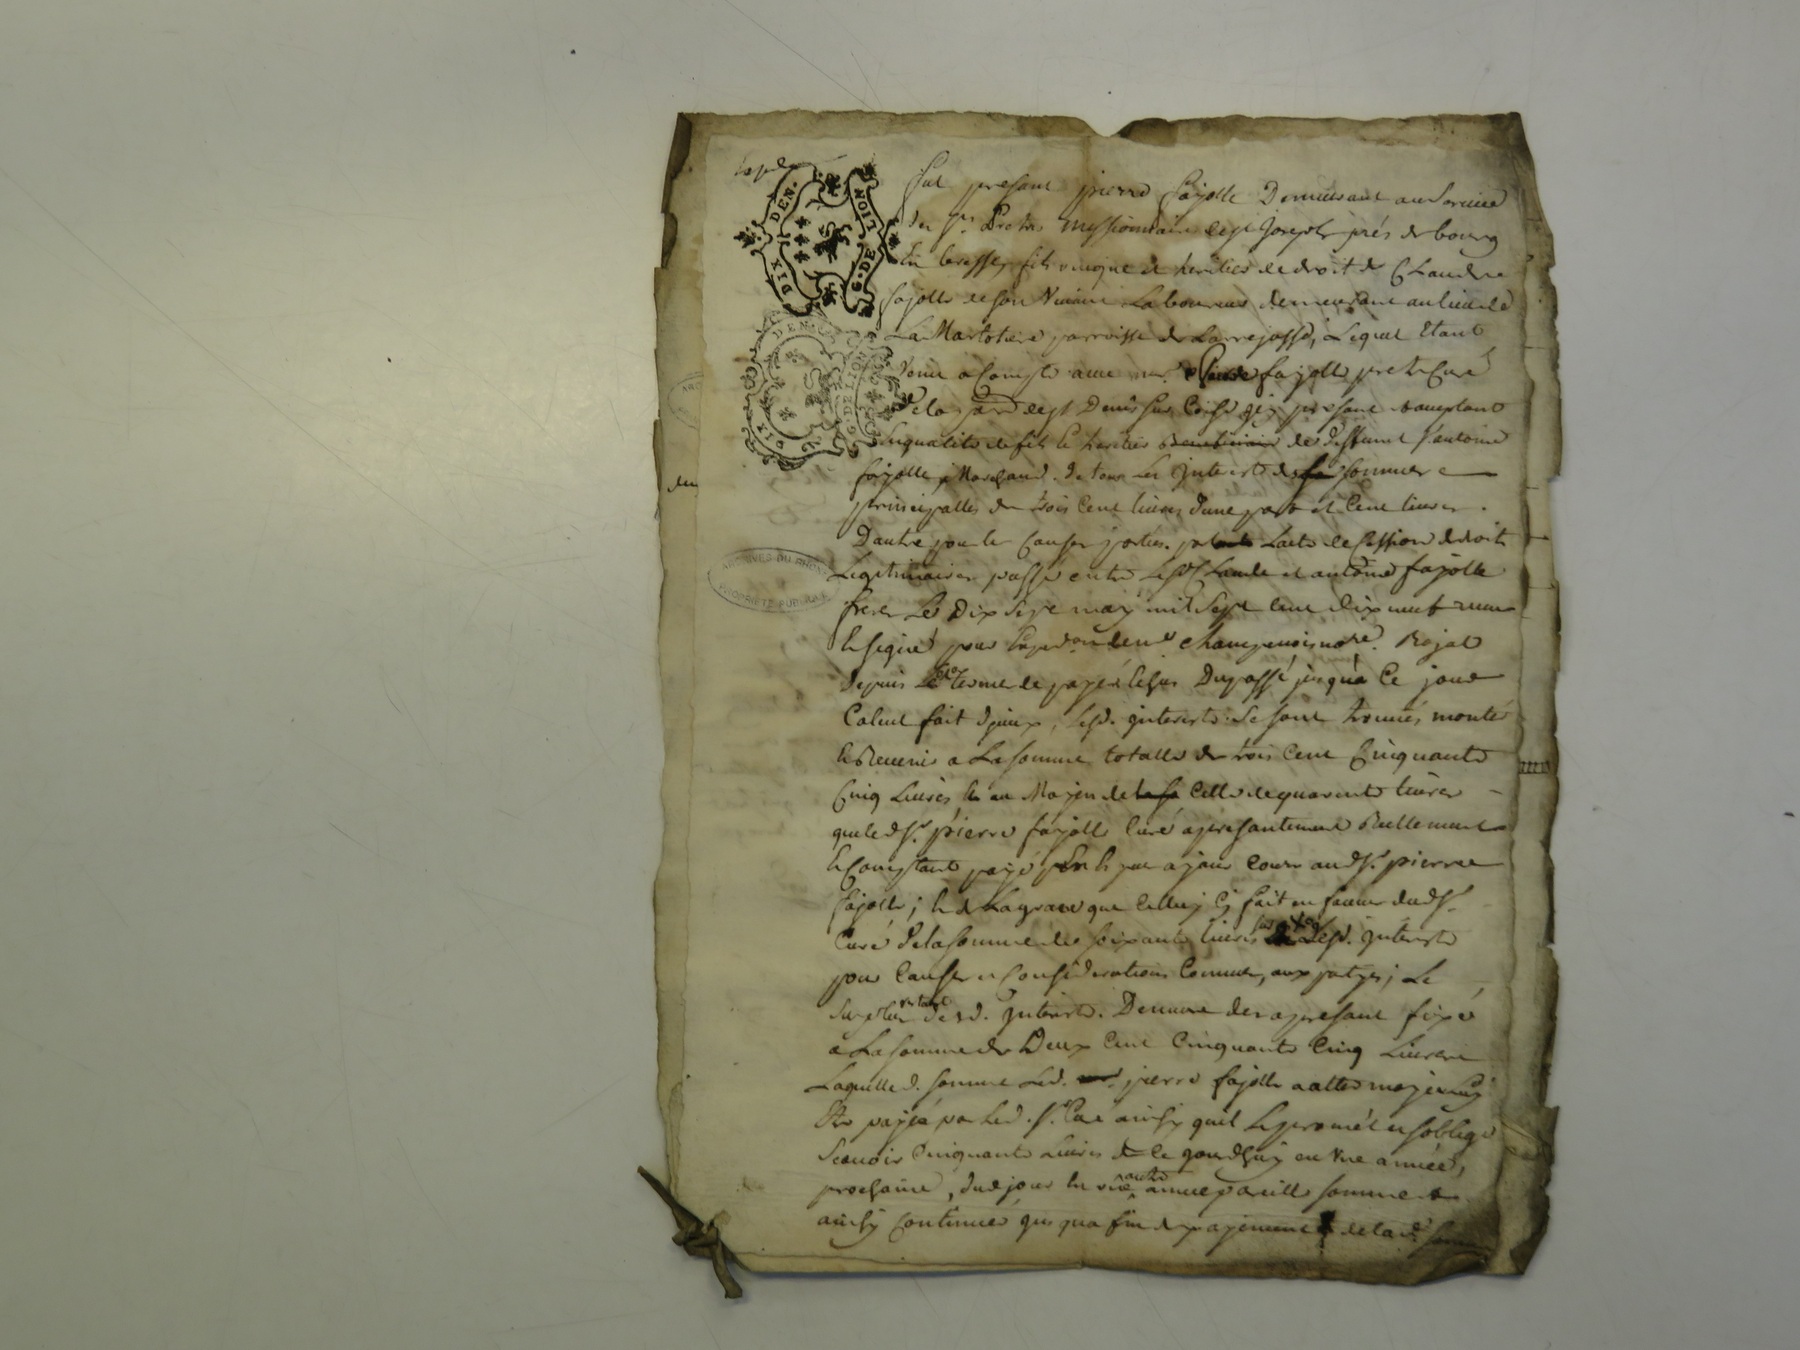 DIX DEN. G. DE LION
DIX DEN. G. DE LION
ARCHIVES DU RHONE
PROPRIETE PUBLIQUE
fut presant pierre fayolle Demeurant au service
des srs. Pretres missionnaire de st Joseph prés de bourg
En bresse, fils unique et heritier de droit de Claude
fayolle de son vivant Laboureur demeurant au lieu de
La Martotiere parroisse de Larrejasse, Lequel Etant
venu a Compte avec fayolle pretre Curé
de st Denis sur Coise icy presant acceptant
En qualité de fils et heritier de deffunt sr antoine
fayolle, Marchand, de tous les interests de sommes
principalles de trois Cent livres d'une part et Cent livres
D'autre pour les Causes portées par Lacte de Cession de droits
Legitimaires passé entre Lesd. Claude et antoine fayolle
freres Le Dix sept may mil sept cent dix neuf
Et signé par Champenois nore. Royal
Depuis Le terme de payer Echus Du passé jusqu'à Ce jour
Calcul fait d'jceux, Lesd. interests se sont trouvés monter
Et Revenir a La somme totalle de trois Cent Cinquante
Cinq Livres Et au Moyen de Celle de quarente livres
que led. sr. pierre fayolle Curé a presentement Reellement
Et Comptant payé aud. sr. pierre
fayolle; Et de La grace que Celluy Cy fait en faveur dud. sr.
Curé de la somme de soixante livres sur Lesd. interests
pour Causes et Considerations Connues, aux partyes; Le
surplus restant desd. interests. Demeure des a presant fixé
a La somme de Deux Cent Cinquante Cinq Livres
Laquelle d. somme Led. pierre fayolle
Etre payée par Led. sr. Curé ainsy quil Le promét et soblige
Scavoir Cinquante Livres de Ce jourdhuy en Une année
prochaine, dud jour En une autre année pareille somme et
ainsy Continuer jusqua fin de payement de lad. somme